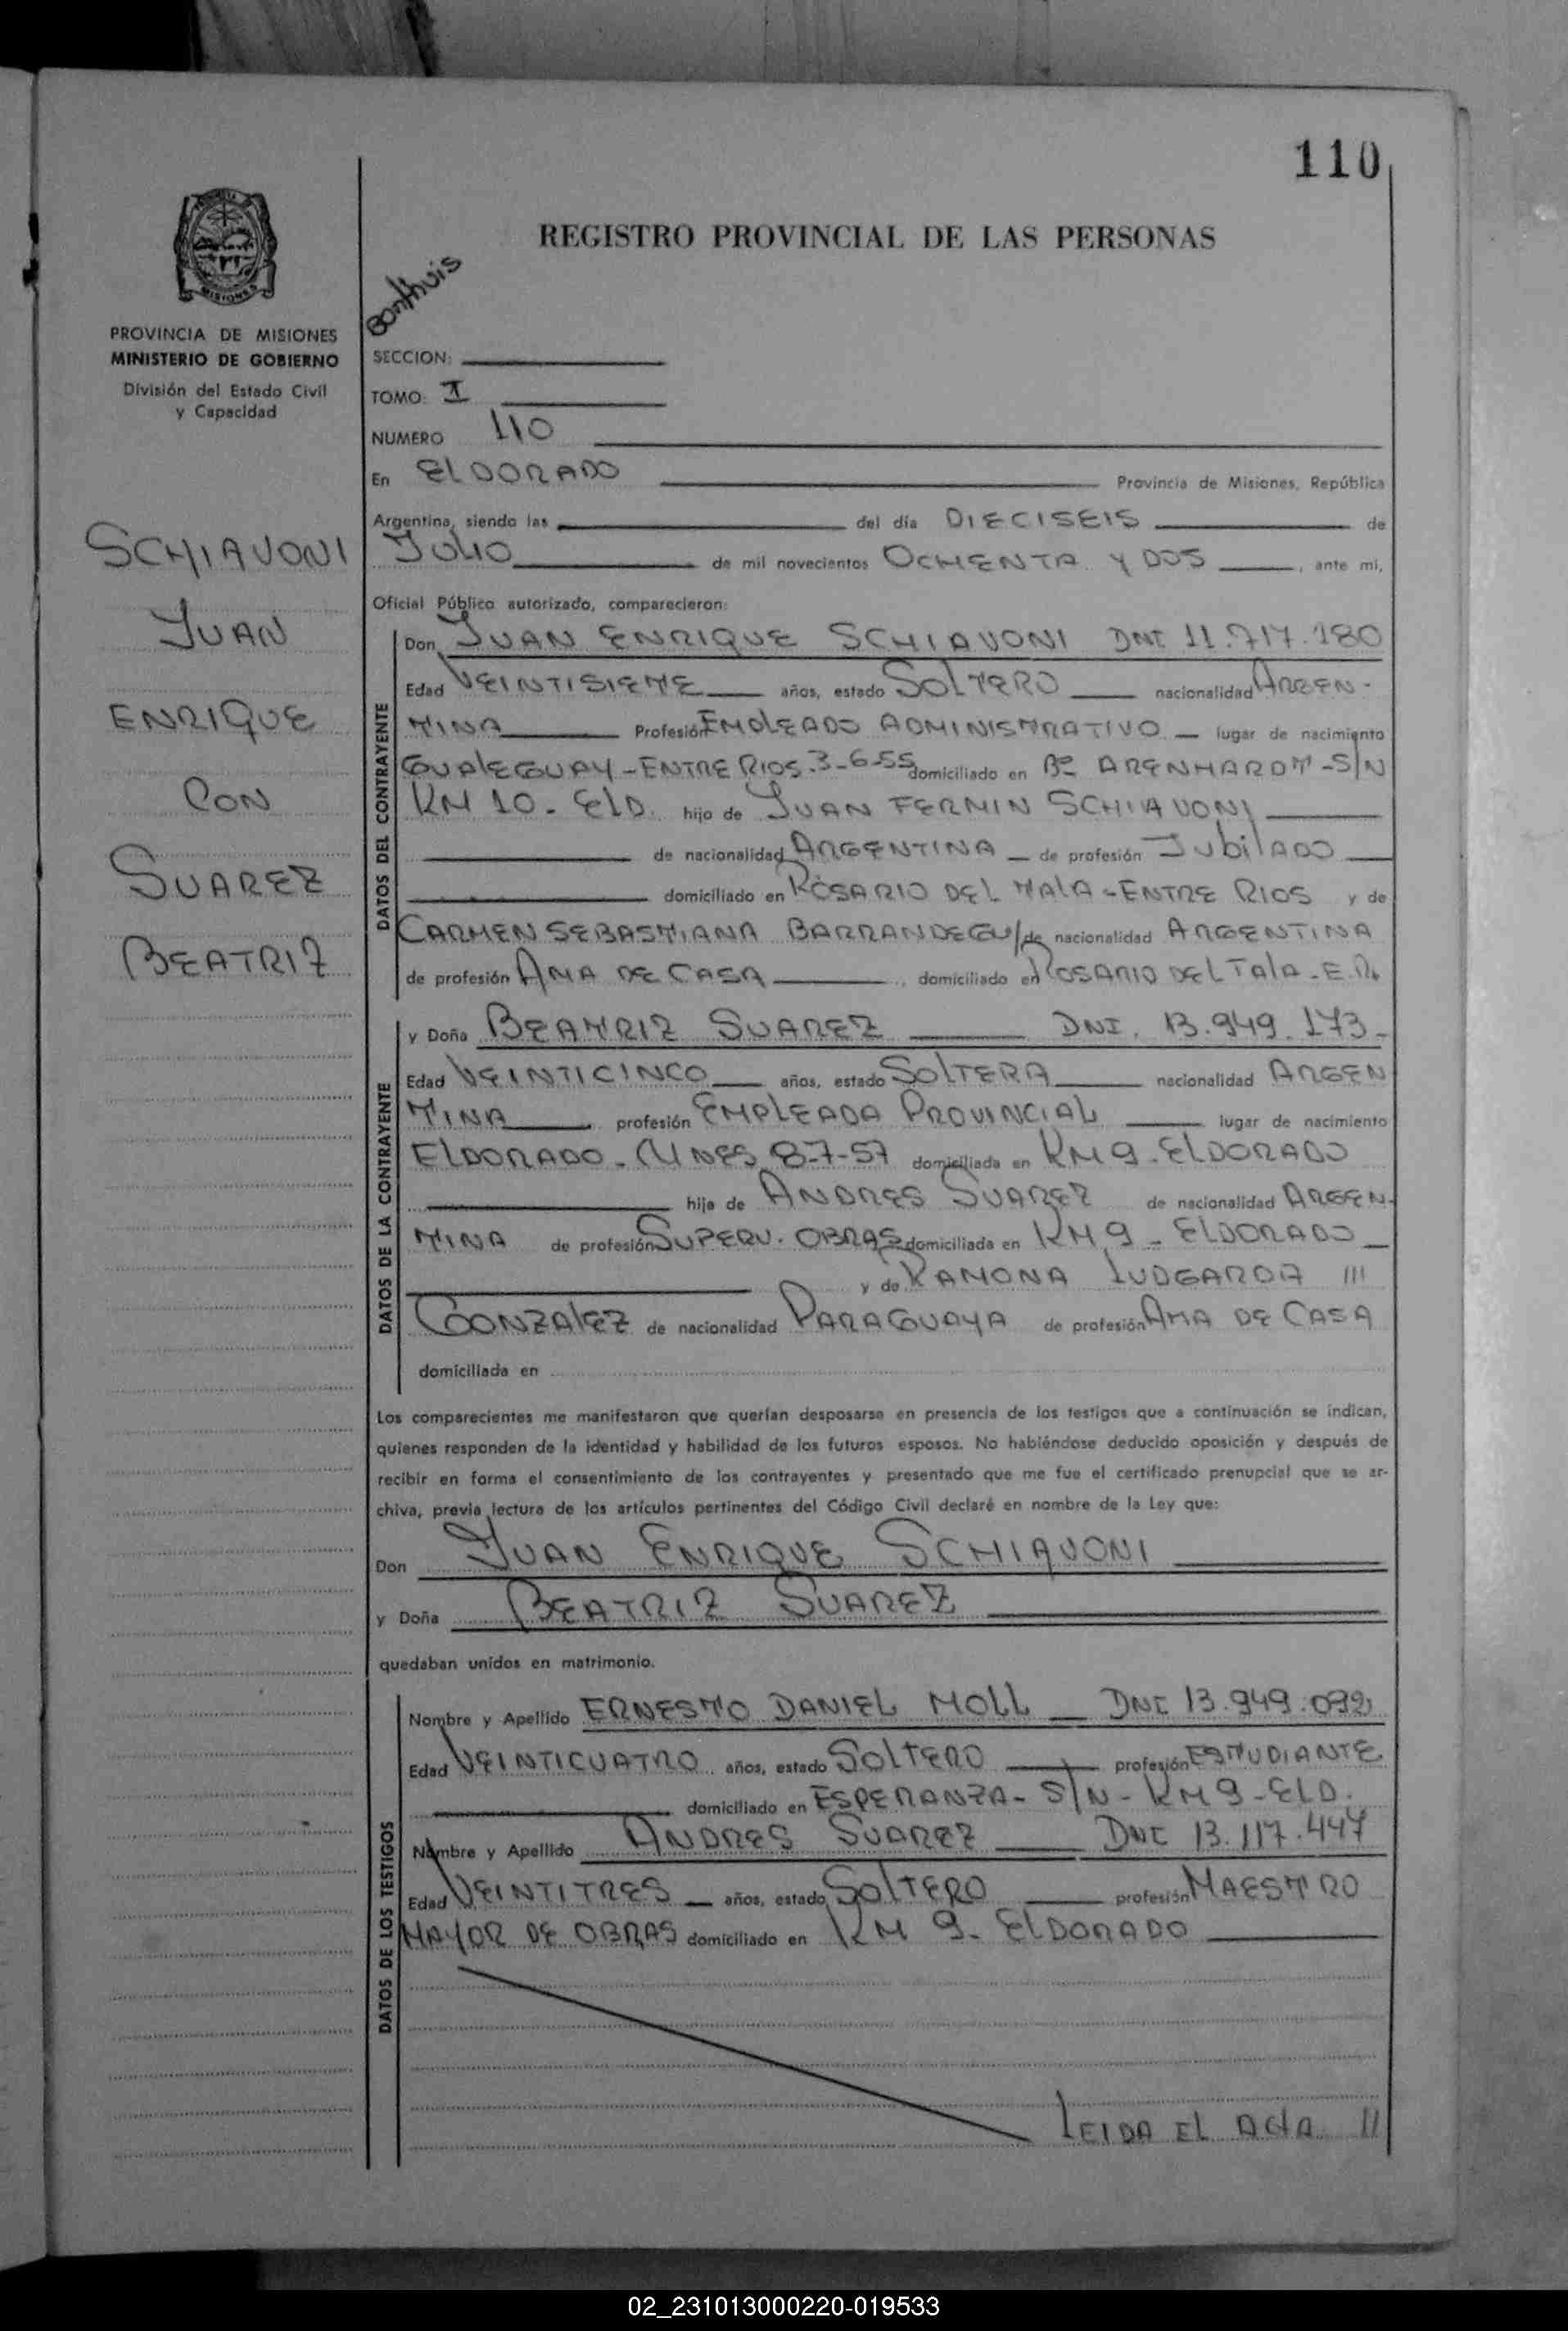 110
REGISTRO PROVINCIAL DE LAS PERSONAS
MISIONES
PROVINCIA DE MISIONES
MINISTERIO DE GOBIERNO
División del Estado Civil
y Capacidad
SCHIAVONI
JUAN
ENRIQUE
CON
SUAREZ
BEATRIZ
Bonthuis
SECCION:
TOMO: I
NUMERO 110
En ELDORADO Provincia de Misiones, República
Argentina, siendo las del día DIECISEIS de
JULIO de mil novecientos OCHENTA Y DOS, ante mi,
Oficial Público autorizado, comparecieron:
DATOS DEL CONTRAYENTE
Don JUAN ENRIQUE SCHIAVONI DNI 11.717.180
Edad VEINTISIETE años, estado SOLTERO nacionalidad ARGEN-
TINA Profesión EMPLEADO ADMINISTRATIVO lugar de nacimiento
GUALEGUAY-ENTRE RIOS.3-6-55 domiciliado en Bº ARENHARDT-S/N
KM 10- ELD. hijo de JUAN FERMIN SCHIAVONI
de nacionalidad ARGENTINA de profesión JUBILADO
domiciliado en ROSARIO DEL TALA-ENTRE RIOS y de
CARMEN SEBASTIANA BARRANDEGU/ de nacionalidad ARGENTINA
de profesión AMA DE CASA, domiciliado en ROSARIO DEL TALA-E.R.
DATOS DE LA CONTRAYENTE
y Doña BEATRIZ SUAREZ DNI. 13.949.173-
Edad VEINTICINCO años, estado SOLTERA nacionalidad ARGEN
TINA profesión EMPLEADA PROVINCIAL lugar de nacimiento
ELDORADO- MNES 8-7-57 domiciliada en KM 9-ELDORADO
hija de ANDRES SUAREZ de nacionalidad ARGEN-
TINA de profesión SUPERV. OBRAS domiciliada en KM 9- ELDORADO
y de RAMONA LUDGARDA ///
GONZALEZ de nacionalidad PARAGUAYA de profesión AMA DE CASA
domiciliada en
Los comparecientes me manifestaron que querían desposarse en presencia de los testigos que a continuación se indican,
quienes responden de la identidad y habilidad de los futuros esposos. No habiéndose deducido oposición y después de
recibir en forma el consentimiento de los contrayentes y presentado que me fue el certificado prenupcial que se ar-
chiva, previa lectura de los artículos pertinentes del Código Civil declaré en nombre de la Ley que:
Don JUAN ENRIQUE SCHIAVONI
y Doña BEATRIZ SUAREZ
quedaban unidos en matrimonio.
DATOS DE LOS TESTIGOS
Nombre y Apellido ERNESTO DANIEL MOLL DNI 13.949.092
Edad VEINTICUATRO años, estado SOLTERO profesión ESTUDIANTE
domiciliado en ESPERANZA- S/N- KM 9-ELD.
Nombre y Apellido ANDRES SUAREZ DNI 13.117.447
Edad VEINTITRES años, estado SOLTERO profesión MAESTRO
MAYOR DE OBRAS domiciliado en KM 9- ELDORADO
LEIDA EL ACTA //
02_231013000220-019533